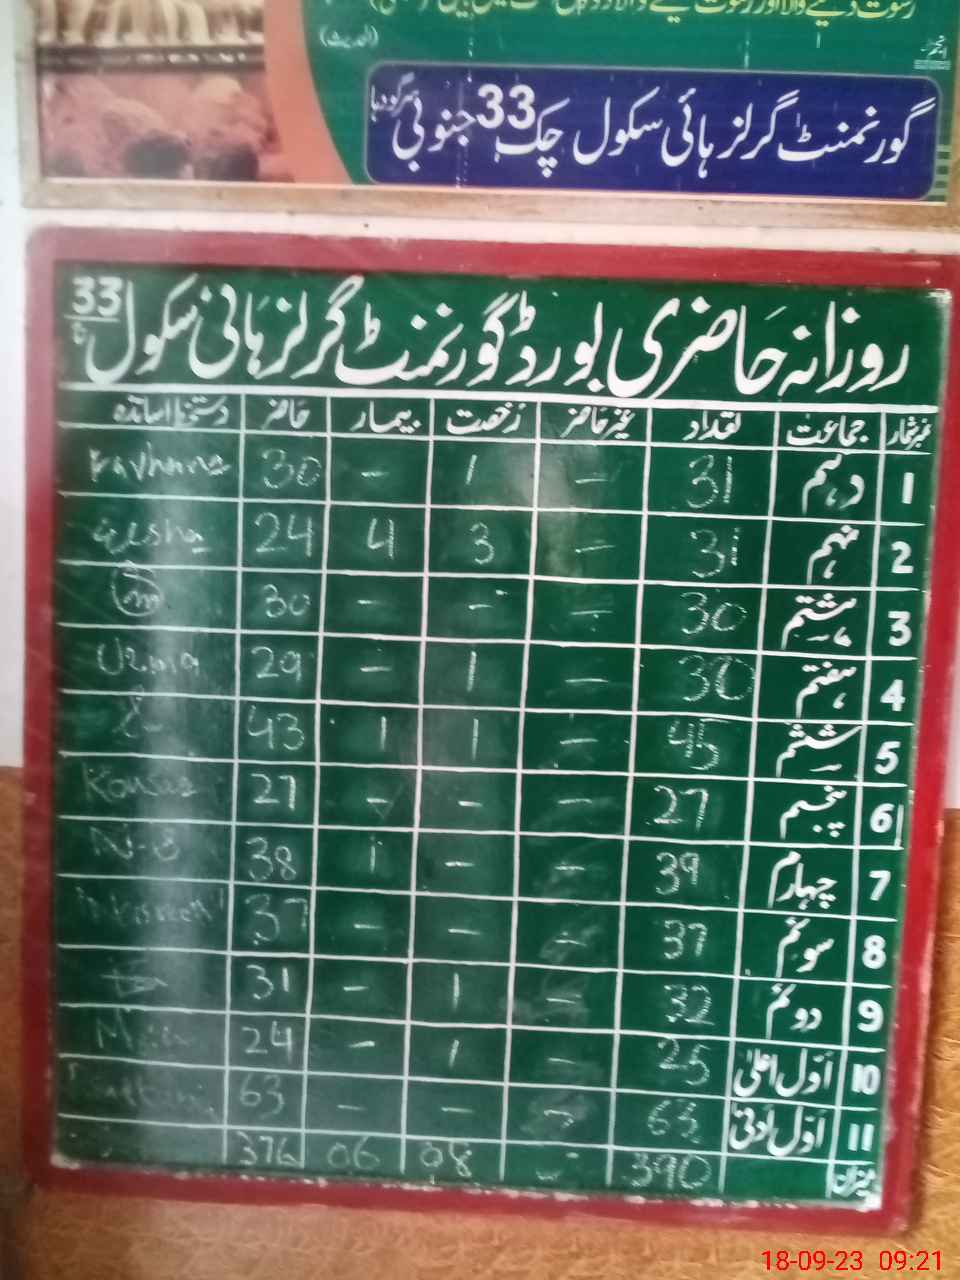 رشوت دینے والا اور رشوت لینے والا دونوں
(الحدیث)
گورنمنٹ گرلز ہائی سکول چک 33 جنوبی سرگودہا
روزانہ حاضری بورڈ گورنمنٹ گرلز ہائی سکول 33
نمبر شمار جماعت تعداد غیر حاضر رخصت بیمار حاضر دستخط اساتذہ
1 دہم 31 – 1 – 30
2 نہم 31 – 3 4 24 Aesha
3 ہشتم 30 – – – 30
4 ہفتم 30 – 1 – 29 Uzma
5 ششم 45 – 1 1 43
6 پنجم 27 – – – 27 Kousar
7 چہارم 39 – – 1 38
8 سوئم 37 – – – 37
9 دوئم 32 – 1 – 31
10 اوّل اعلیٰ 25 – 1 – 24
11 اوّل ادنیٰ 63 – – – 63
میزان 390 – 08 06 376
18-09-23 09:21